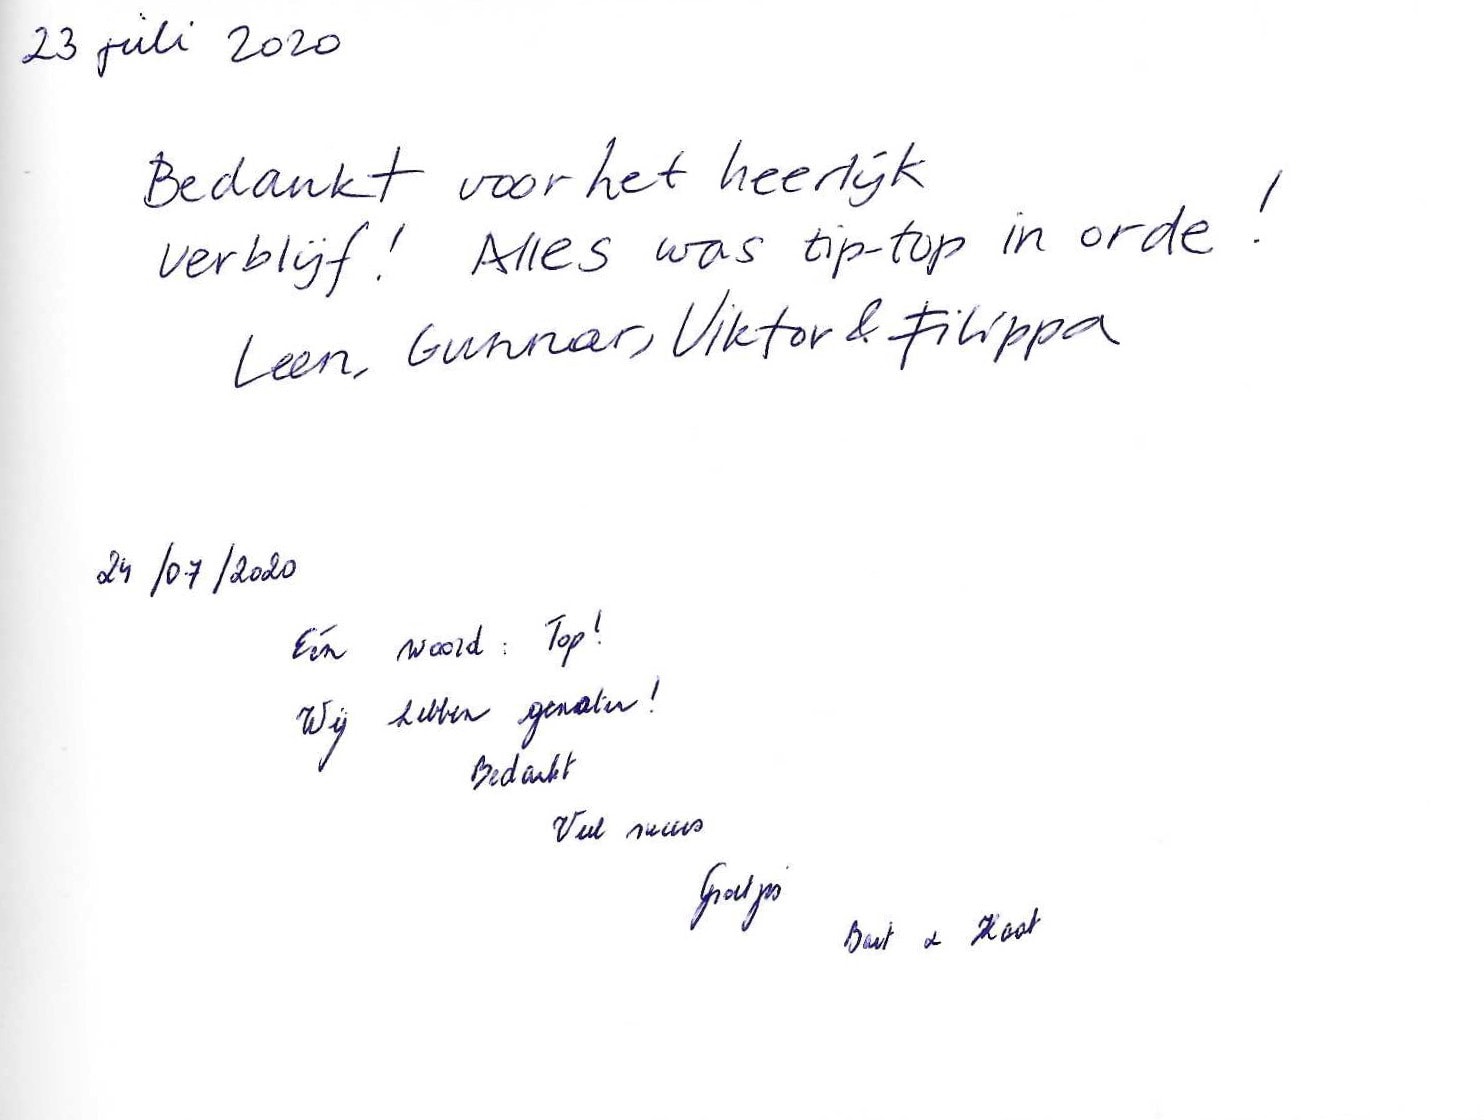 23 juli 2020
Bedankt voor het heerlijk
verblijf! Alles was tip-top in orde!
Leen, Gunnar, Viktor & Filippa
24/07/2020
Eén woord: Top!
Wij hebben genoten!
Bedankt
Veel succes
Groetjes
Bart & Kaat